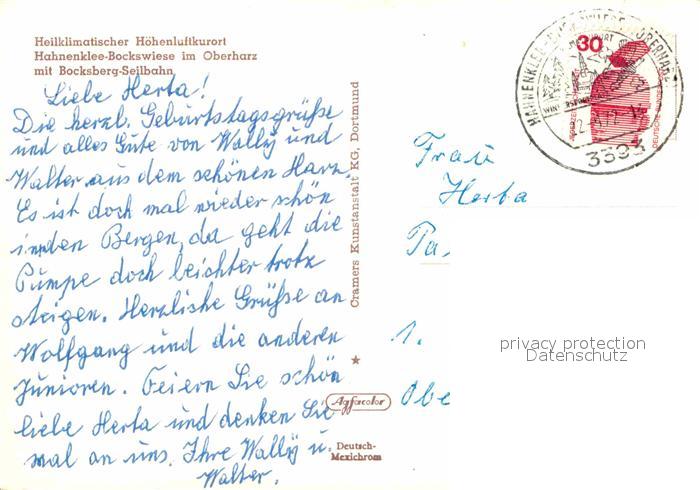 Heilklimatischer Höhenluftkurort
Hahnenklee-Bockswiese im Oberharz
mit Bocksberg-Seilbahn
Liebe Herta!
Die herzl. Geburtstagsgrüße
und alles Gute von Wally und
Walter aus dem schönen Harz.
Es ist doch mal wieder schön
in den Bergen, da geht die
Pumpe doch leichter trotz
steigen. Herzliche Grüße an
Wolfgang und die anderen
Junioren. Feiern Sie schön
liebe Herta und denken Sie
mal an uns. Ihre Wally u.
Walter.
Cramers Kunstanstalt KG, Dortmund
Agfacolor
Deutsch-
Mexichrom
HAHNENKLEE-BOCKSWIESE OBERHARZ
3393
30
DEUTSCHE BUNDESPOST
Frau
Herta
Pa.
1.
Obe
privacy protection
Datenschutz